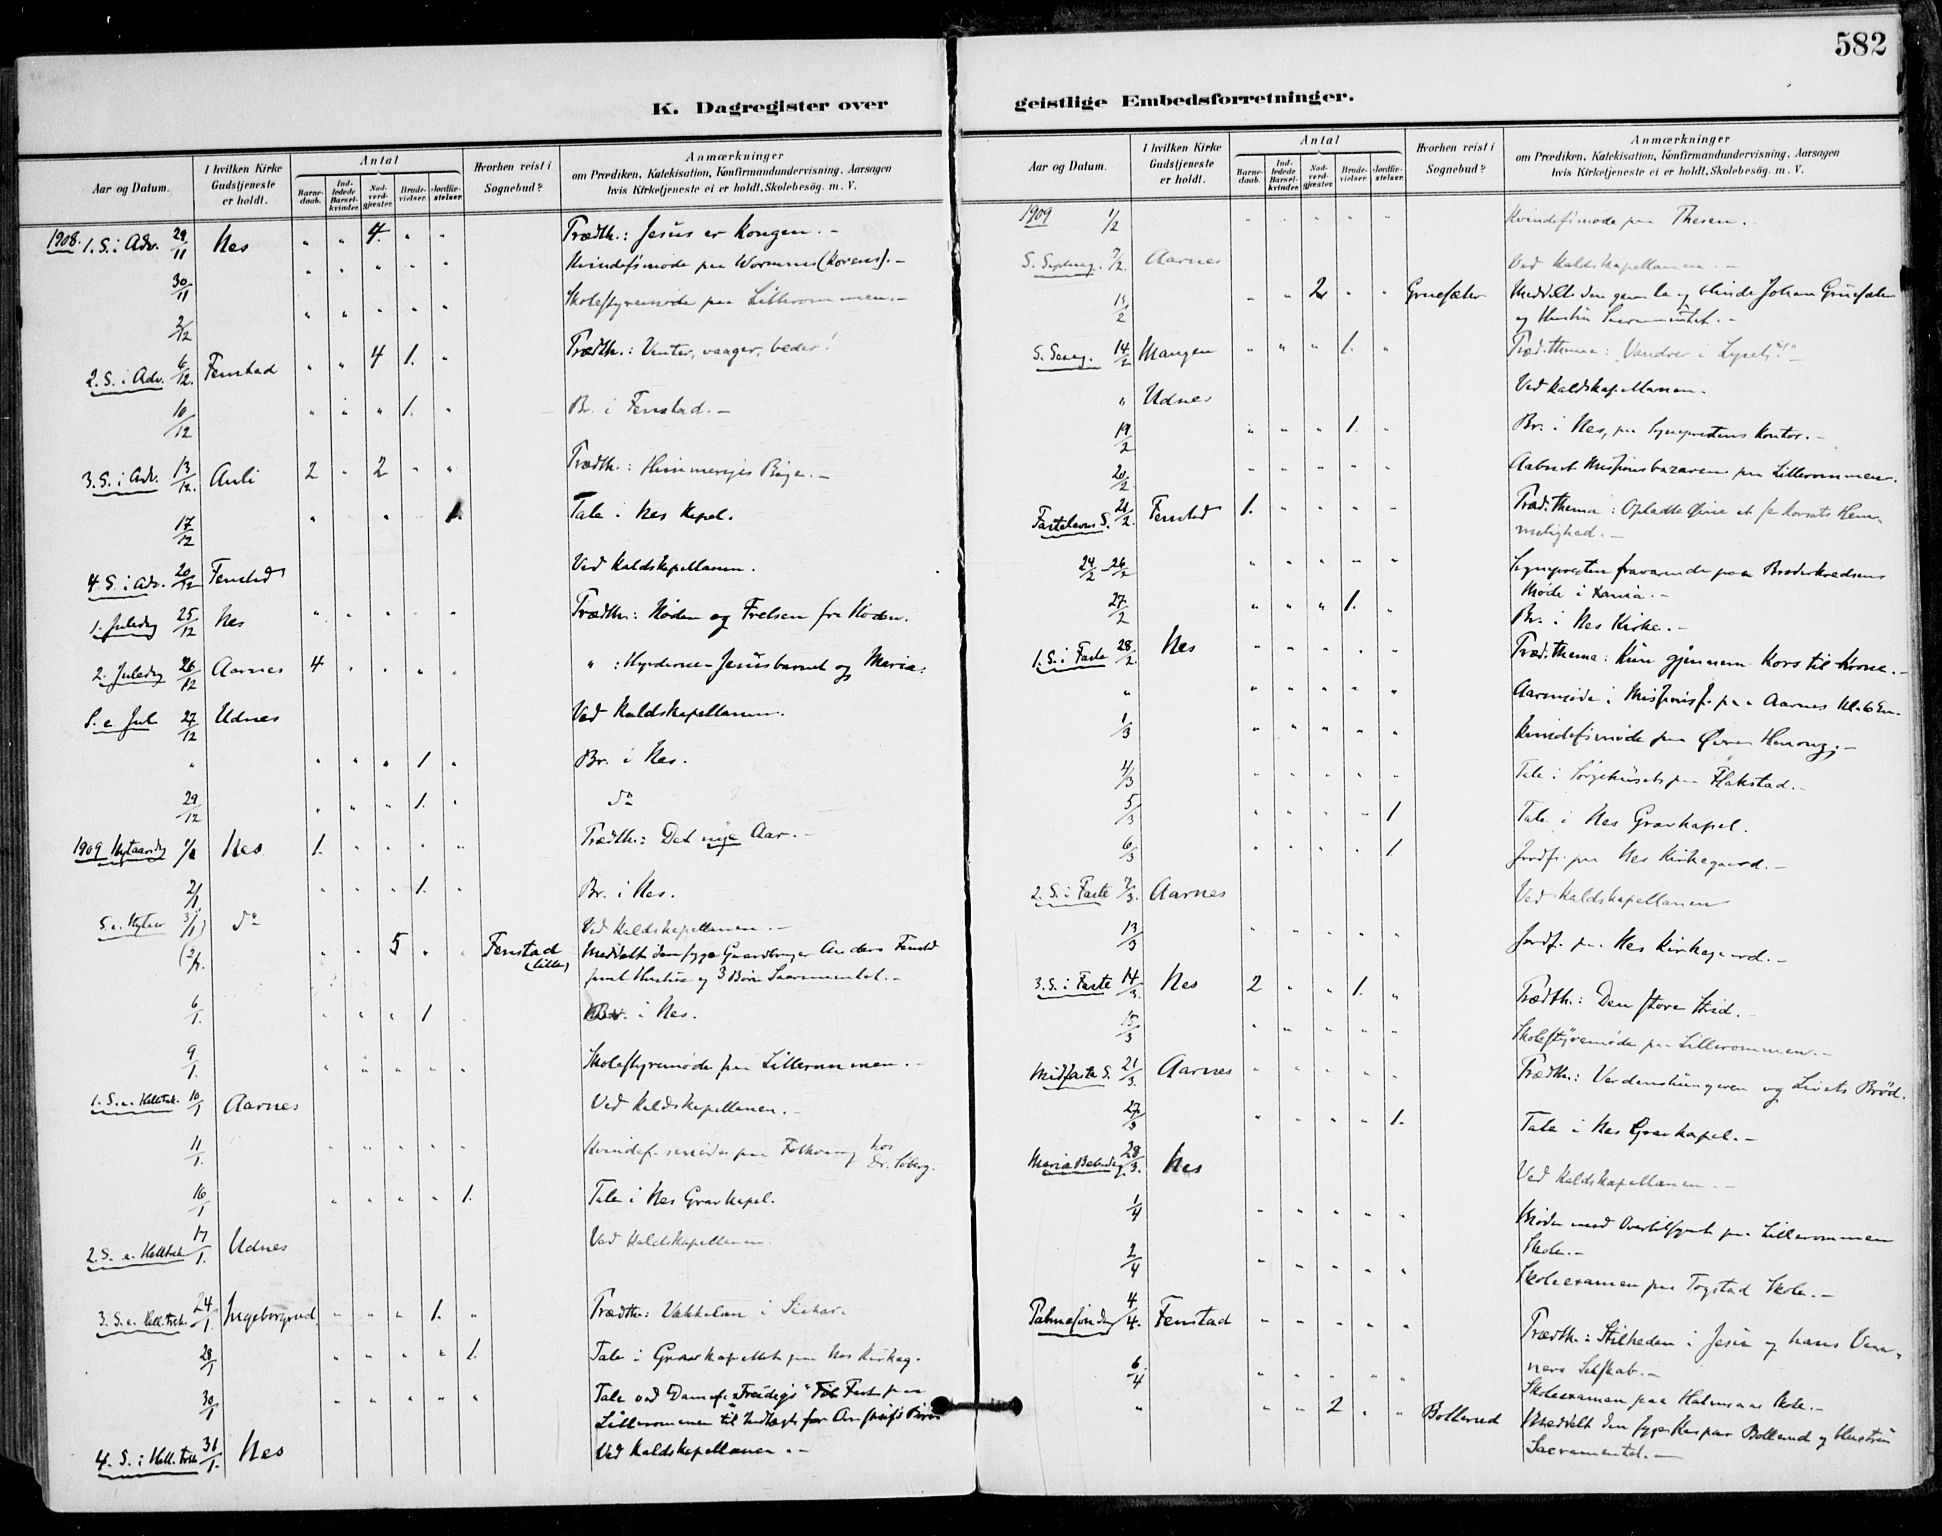 582
K. Dagregister over
Aar og Datum.
I hvilken Kirke Gudstjeneste er holdt.
Antal
Barnedaab.
Indledede Barselkvinder.
Nadverdgjæster.
Brudevielser.
Jordfæstelser.
Hvorhen reist i Sognebud?
Anmærkninger
om Prædiken, Katekisation, Konfirmandundervisning, Aarsagen
hvis Kirketjeneste ei er holdt, Skolebesøg. m. V.
1908. 1. S. i Adv. 29/11 Nes " " 4. " " Prædth.: Jesus er Kongen. –
" " " " " Kvindef.møde paa Wormnes (Korens). –
30/11 " " " " " Skolestyremøde paa Lillerommen. –
2/12
2. S. i Adv. 6/12. Fenstad " " 4 1. " Prædth.: Venter, vaager, beder!
10/12 " " " 1. " Br. i Fenstad. –
3. S. i Adv. 13/12. Auli 2 " 2 " " Prædth.: Himmeriges Rige. –
17/12 " " 1. Tale i Nes Kapel.
4 S. i Adv. 20/12 Fenstad Ved Kaldskapellanen.
1. Juledag 25/12 Nes " " " " " Prædth.: Nøden og Frelsen fra Nøden.
2. Juledag 26/12 Aarnes 4 " " " " " : Hyrderne – Jesusbarnet og Maria.
S. e. Jul 27/12 Udnes Ved Kaldskapellanen.
" " " " 1. " Br. i Nes.
29/12 " " " 1. " do
1909 Nytaarsdag 1/1 Nes 1. " " " " Prædth.: Det nye Aar. –
2/1 " " " 1. " Br. i Nes.
S. e. Nytaar 3/1 do Ved Kaldskapellanen. –
(2/1. " " 5 " " Fenstad (lille) Meddelt den syge Gaardbruger Anders Fenstad
samt Hustru og 3 Børn Sacramentet. –
6/1. " " " 1 " Br. i Nes.
9/1. " " " " " Skolestyremøde paa Lillerommen. –
1. S. e. Helltrek. 10/1 Aarnes Ved Kaldskapellanen. –
11/1. " " " " " Kvindef. møde paa Folkvang hos Dr. Soberg.
16/1 " " " " 1. Tale i Nes Gravkapel.
2. S. e. Helltrek 17/1. Udnes Ved Kaldskapellanen.
3. S. e. Hell.trek. 24/1. Ingeborgrud. " " " 1. " Prædth.: Vækkelsen i Sichar.
28/1 " " " " 1. Tale i Gravkapellet paa Nes Kirkeg.
30/1 " " " " " Tale ved Damef. "Freidigs" Fest paa
Lillerommen til Indtægt for
4. S. i Hell. trek 31/1. Nes Ved Kaldskapellanen. –
geistlige Embedsforretninger.
Aar og Datum.
I hvilken Kirke Gudstjeneste er holdt.
Antal
Barnedaab.
Indledede Barselkvinder.
Nadverdgjæster.
Brudevielser.
Jordfæstelser.
Hvorhen reist i Sognebud?
Anmærkninger
om Prædiken, Katekisation, Konfirmandundervisning, Aarsagen
hvis Kirketjeneste ei er holdt, Skolebesøg. m. V.
1909 1/2 " " " " " Kvindef.møde paa Thesen.
S. Septuag. 7/2. Aarnes Ved Kaldskapellanen. –
" " 2 " " Gruesæter Meddelt den gamle og blinde Johan Gruesæter
og Hustru Sacramentet. –
S. Sexag. 14/2 Mangen " " " 1. " Præd.thema: Vandrer i Lyset! –
" Udnes Ved Kaldskapellanen.
19/2 " " " 1. " Br. i Nes, paa Sognprestens Kontor. –
20/2 " " " " " Aabnet Missionsbazaren paa Lillerommen.
Fastelavns S. 21/2. Fenstad 1. " " " " Præd.thema: Opladte Øine at se Korsets Hemmelighed. –
24/2 – 26/2 " " " " " Sognepresten fraværende paa Broderkredsens
Møde i Xania. –
27/2 " " " 1. " Br. i Nes Kirke. –
1. S. i Faste 28/2. Nes " " " " " Præd.thema: Kun gjennem Kors til Krone. –
" " " " " " Aarsmøde i Missionsf. paa Aarnes Kl. 6 Em.
1/3 " " " " " Kvindef.møde paa Øvre Henong. –
4/3 " " " " " Tale i Sørgehuset paa Flakstad. –
5/3 " " " " 1 Tale i Nes Gravkapel.
6/3 " " " " 1. Jordf. paa Nes Kirkegaard. –
2. S. i Faste 7/3. Aarnes Ved Kaldskapellanen
13/3 " " " " " Jordf. paa Nes Kirkegaard. –
3. S. i Faste 14/3. Nes 2 " " 1. " Prædth.: Den store Strid. –
15/3 " " " " " Skolestyremøde paa Lillerommen. –
Midfaste S. 21/3. Aarnes " " " " " Prædth.: Verdenshungeren og Livets Brød.
27/3 " " " " 1. Tale i Nes Gravkapel. –
Maria Bebudelse 28/3. Nes Ved Kaldskapellanen. –
1/4 " " " " " Møde med Overtilsynet paa Lillerommen
Skole. –
2/4 " " " " " Skoleexamen paa Togstad Skole. –
Palmesøndag 4/4. Fenstad " " " " " Prædth.: Stilheden i Jesu og hans Venners Selskab. –
6/4 " " " " " Skoleexamen paa Halmsaas Skole. –
" " " 2 " " Bollerud Meddelt den syge Kasper Bollerud og Hustru
Sacramentet. –